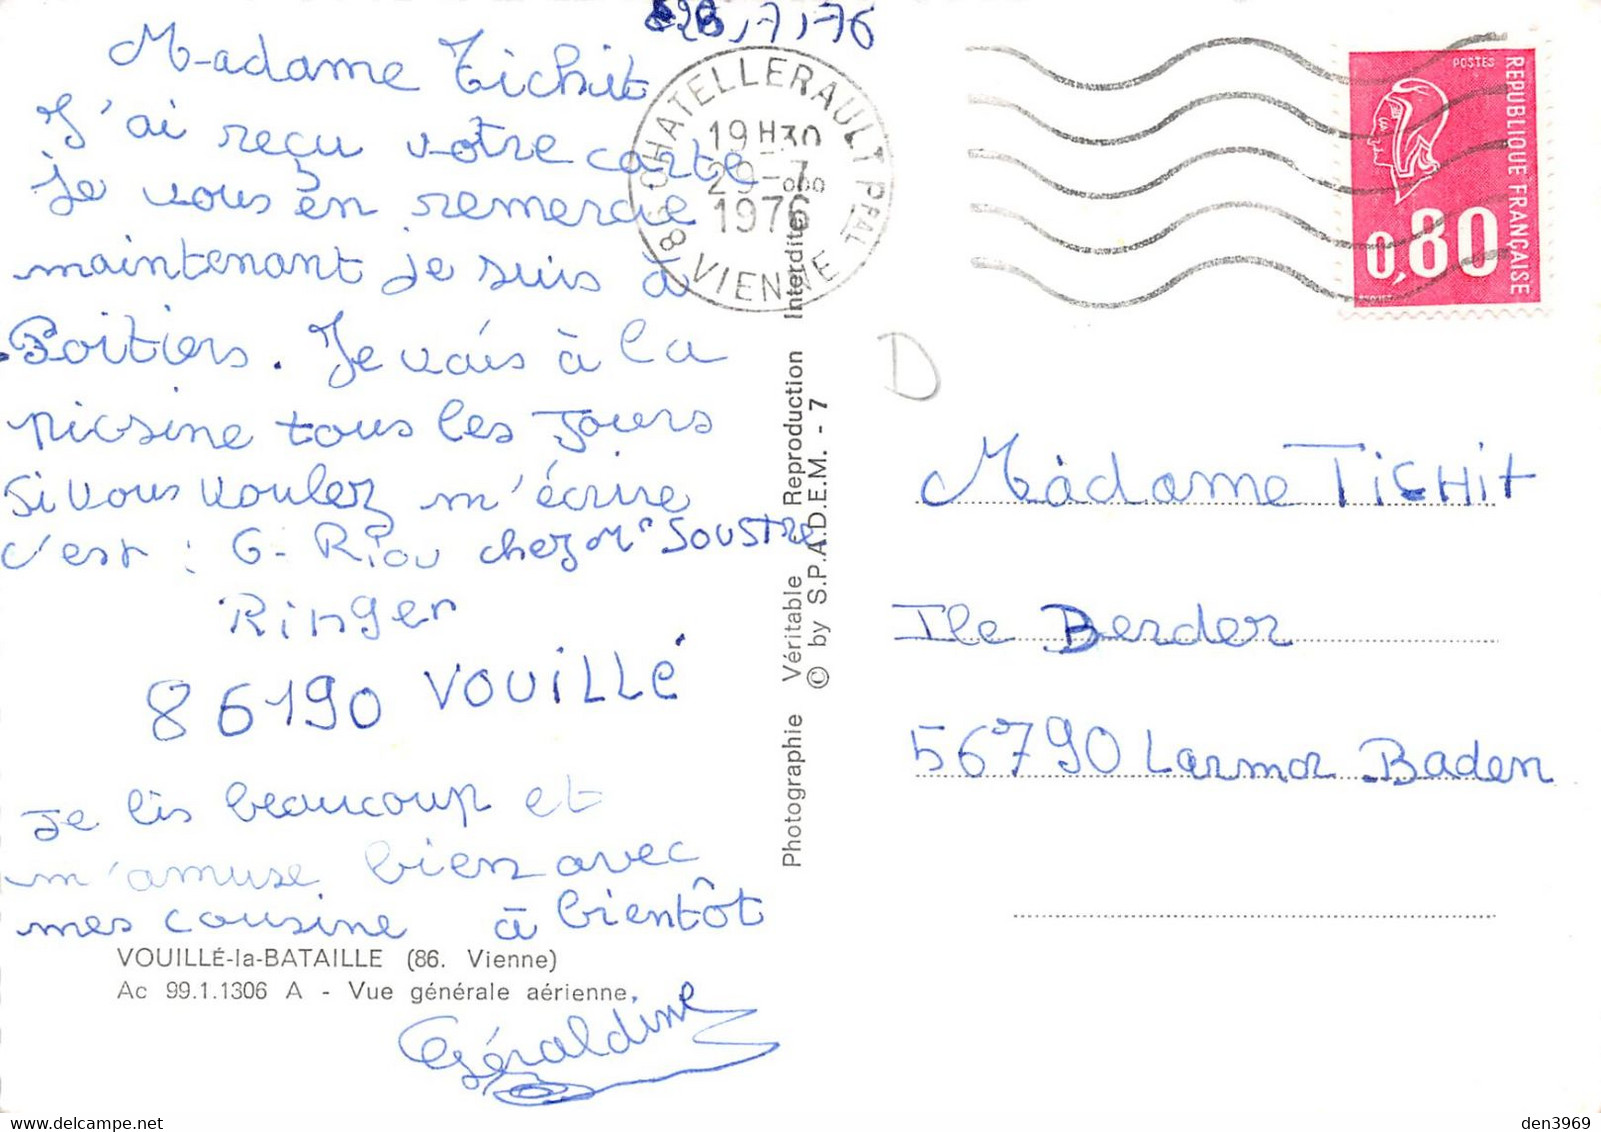 28,7,76
Madame Tichit
J'ai reçu votre carte
je vous en remercie
maintenant je suis à
Poitiers. Je vais à la
picsine tous les jours
si vous voulez m'écrire
c'est : G. Riou chez Mr SOUSTRE
Ringer
86190 VOUILLÉ
je lis beaucoup et
m'amuse bien avec
mes cousine à bientôt
Géraldine
VOUILLÉ-la-BATAILLE (86. Vienne)
Ac 99.1.1306 A - Vue générale aérienne.
86 CHATELLERAULT PPAL
19H30
29-7
1976
VIENNE
Photographie Véritable - Reproduction Interdite
© by S.P.A.D.E.M. - 7
POSTES
REPUBLIQUE FRANÇAISE
0,80
D
Madame TICHIT
Ile Berder
56790 Larmor Baden
den3969